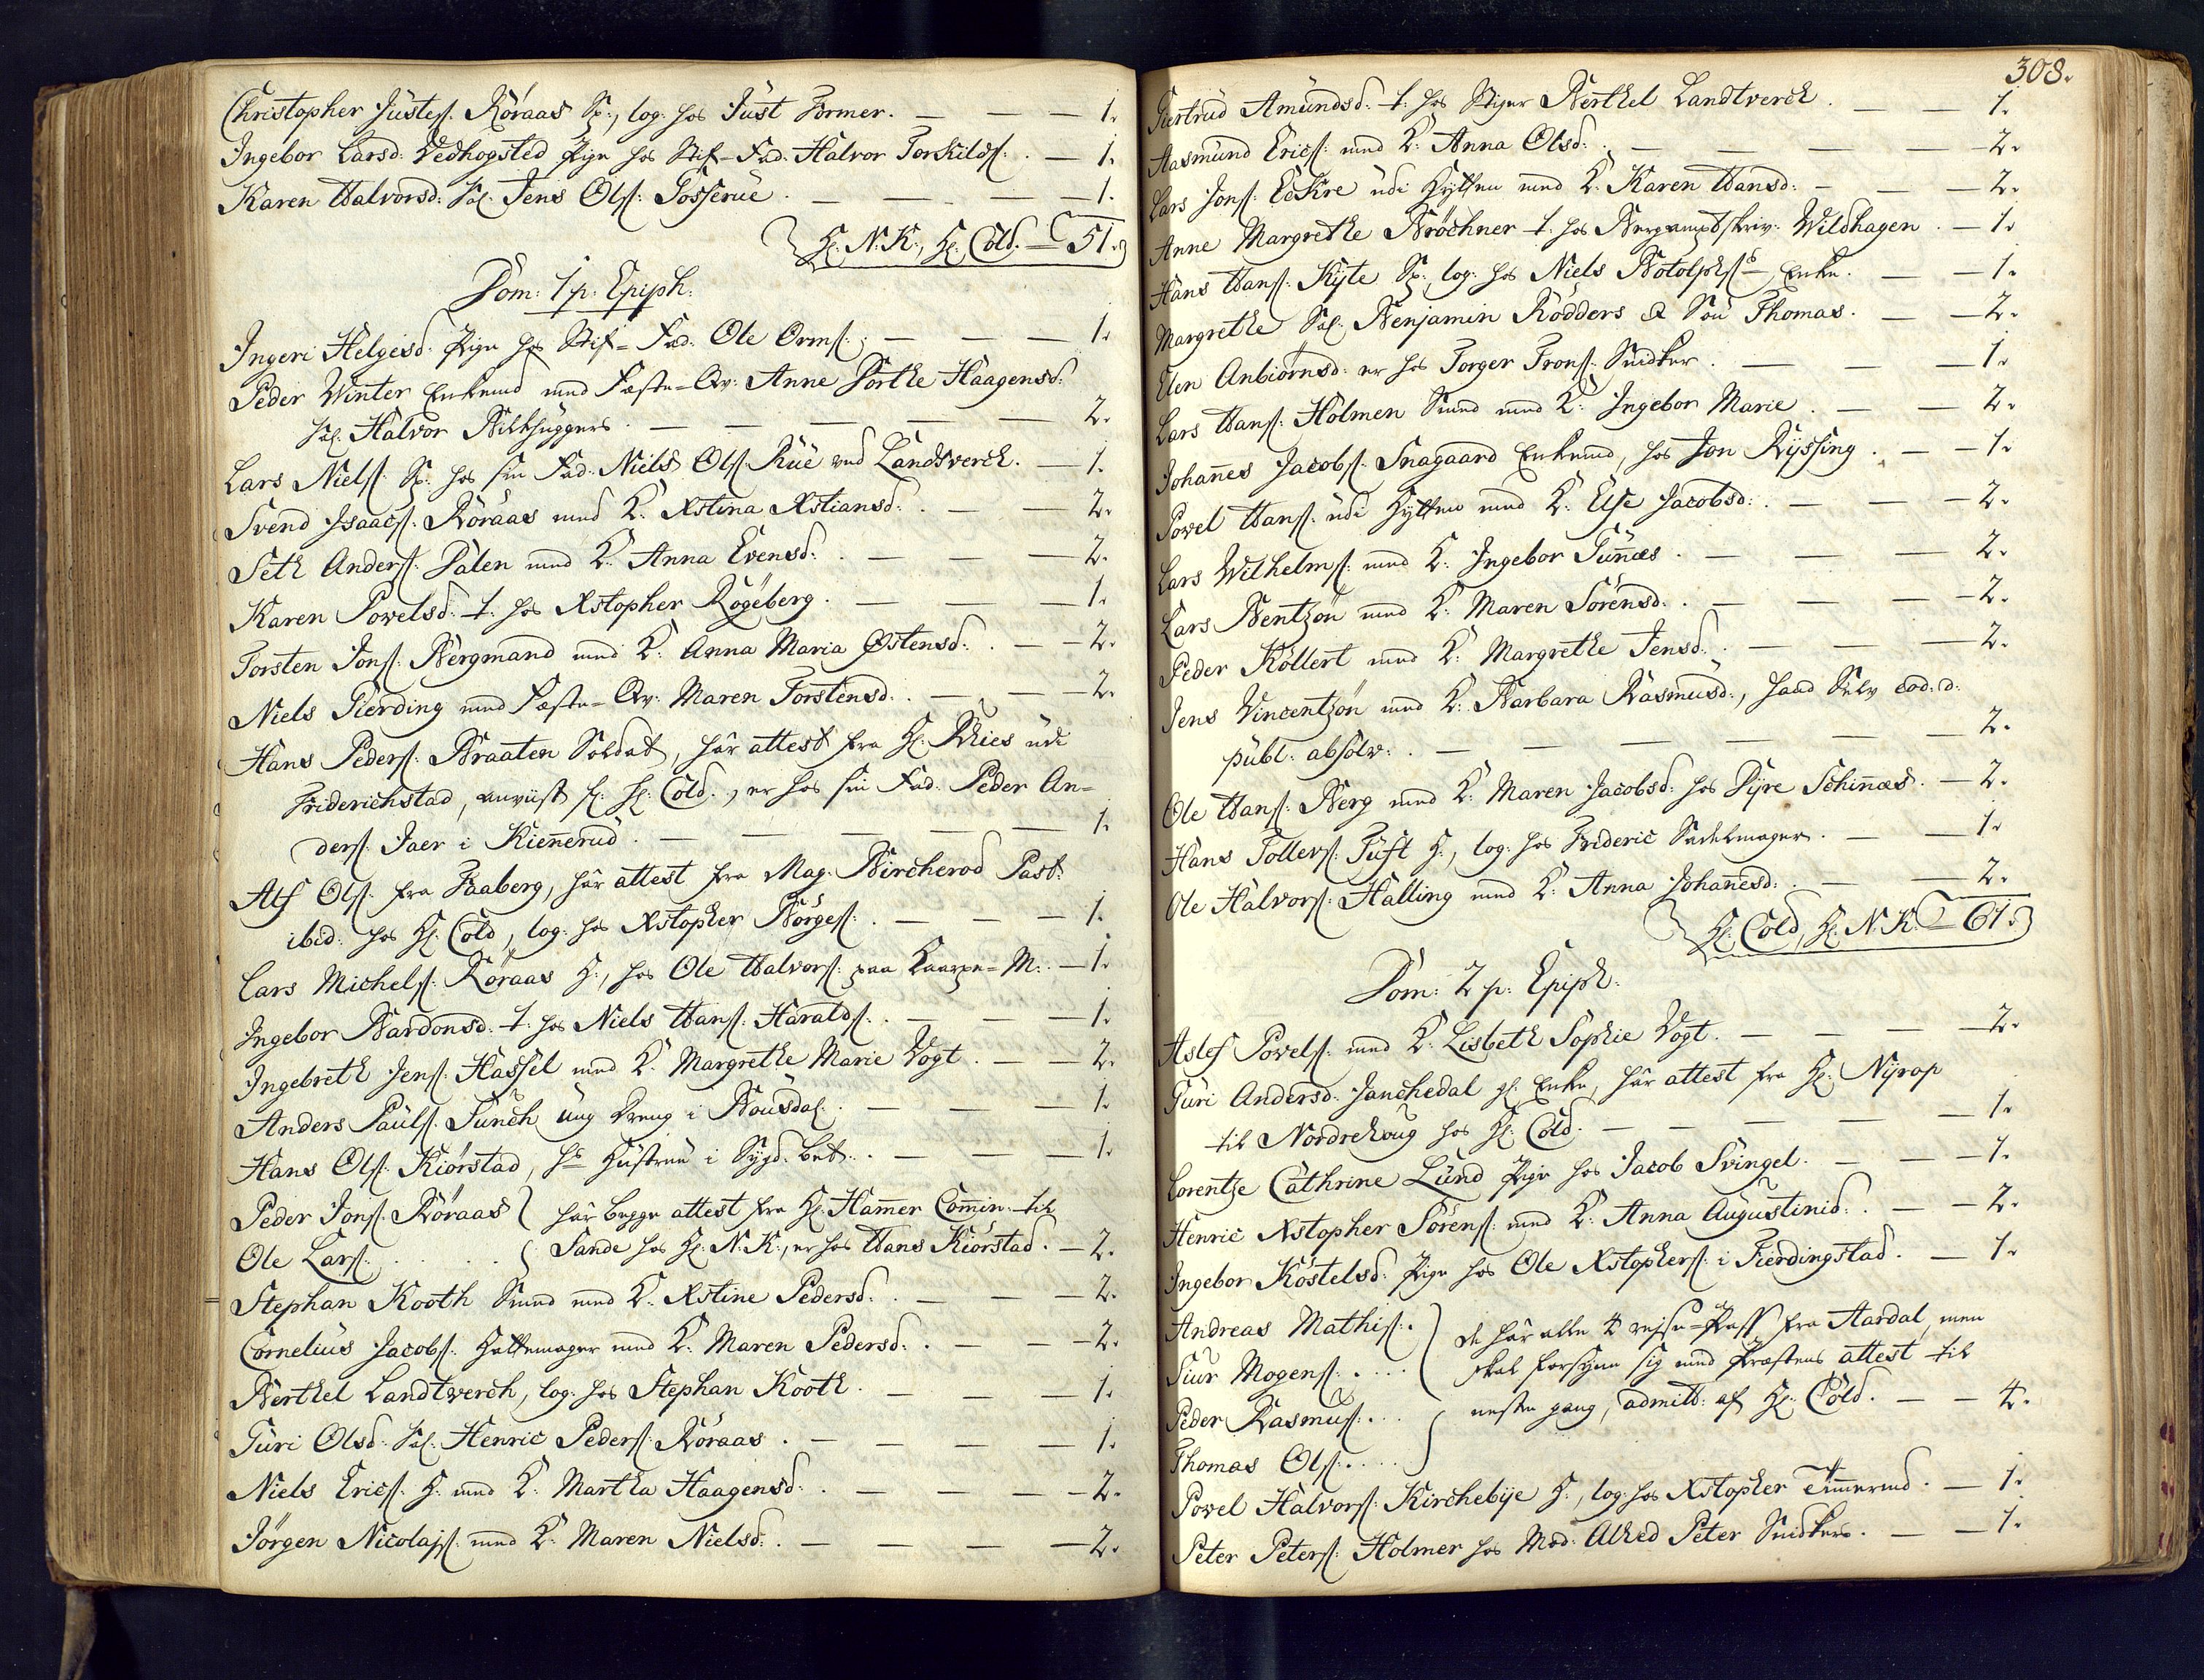 Christopher Justes: Röraas Sp:, log: hos Just Former. — — — 1.
Ingebor Larsd: Vedhogsted Pige hos Stif-Fad: Halvor Torkilds: . — 1.
Karen Halvorsd: Sal: Jens Ols: Fosserue . — — — 1.
H: N: K:, H: Cold. — 51.
Dom: 1 p: Epiph:
Ingeri Helgesd: Pige hos Stif-Fad: Ole Orms: . — — — 1.
Peder Winter Enkemd med Fæste-Qv: Anne Dorthe Haagensd:
Sal: Halvor Blikhuggers . — — — 2.
Lars Niels: Sp: hos sin Fad: Niels Ols: Rue ved Landtverck. — 1.
Svend Isaacs: Röraas med K: Xstina Xstiansd: . — — 2.
Seth Anders: Dalen med K: Anna Evensd: . — — — 2.
Karen Povelsd: t: hos Xstopher Rögeberg . — — — 1.
Torsten Jons: Bergmand med K: Anna Maria Østensd: . — 2.
Niels Fierding med Fæste-Qv: Maren Torstensd: . — — 2.
Hans Peders: Braaten Soldat, har attest fra H: Bries udi
Friderichstad, anviist H: Cold., er hos sin Fad: Peder An-
ders: Jaer i Kiennerud . — — — — 1.
Alf Ols: fra Faaberg, har attest fra Mag: Bircherod Past:
ibid: hos H: Cold, log: hos Xstopher Börges: . — — — 1.
Lars Michels: Röraas H:, hos Ole Halvors: paa Kaarpe-M: . — 1.
Ingebor Bardonsd: t: hos Niels Hans: Haralds: . — — — 1.
Ingebreth Jens: Hassel med K: Margrethe Marie Vogt . — — 2.
Anders Pauls: Funch ung Dreng i Bousdal . — — — 1.
Hans Ols: Kiörstad, hs Hustrue i Sygd: bet: . — — — 1.
Peder Jons: Röraas } har begge attest fra H: Hammer Commin: til
Ole Lars: . . . . . { Sande hos H: N: K:, er hos Hans Kiörstad. — 2.
Stephan Kooth Smed med K: Xstine Pedersd: . — — — 2.
Cornelius Jacobs: Hattemager med K: Maren Pedersd: . — — 2.
Berthel Landtverch, log: hos Stephan Kooth . — — — 1.
Turi Olsd: Sal: Henric Peders: Röraas . — — — — 1.
Niels Erics: H: med K: Martha Haagensd: . — — — 2.
Jörgen Nicolajs: med K: Maren Nielsd: . — — — — 2.
308.
Giertrud Amundsd: t: hos Stiger Berthel Landtverch . — — 1.
Aasmund Erics: med K: Anna Olsd: . — — — — 2.
Lars Jons: Eckre udi Hytten med K: Karen Hansd: — — — 2.
Anne Margrethe Bröchner t: hos Bergamptskriv: Wildhagen . — 1.
Hans Hans: Kyte Sp:, log: hos Niels Botolphs: Enke . — — 1.
Margrethe Sal: Benjamin Rödders & Sön Thomas . — — 2.
Elen Anbiörnsd: er hos Torger Trons: Snidker . — — — 1.
Lars Hans: Holmen Smed med K: Ingebor Marie . — — 2.
Johannes Jacobs: Snagaard Enkemd, hos Jon Ryssing . — — 1.
Povel Hans: udi Hytten med K: Else Jacobsd: . — — — 2.
Lars Wilhelms: med K: Ingebor Tunnæs . — — — 2.
Lars Bentzon med K: Maren Sörensd: . — — — 2.
Peder Köllert med K: Margrethe Jensd: . — — — 2.
Jens Vincentzon med K: Barbara Rasmusd:, hand Selv eod: d:
publ: absolv: . — — — — — 2.
Ole Hans: Berg med K: Maren Jacobsd: hos Dyre Schinnæs . — 2.
Hans Tollers: Tuft H:, log: hos Frideric Sadelmager . — — 1.
Ole Halvors: Halling med K: Anna Johannesd: . — — 2.
H: Cold, H: N: K: — 61.
Dom: 2 p: Epiph:
Aslef Povels: med K: Lisbeth Sophie Vogt . — — — 2.
Turi Andersd: Janchedal gl: Enke, har attest fra H: Nyrop
til Nordrehoug hos H: Cold . — — — — 1.
Lorentze Cathrine Lund Pige hos Jacob Svingel . — — 1.
Henric Xstopher Sörens: med K: Anna Augustinid: . — — 2.
Ingebor Köstelsd: Pige hos Ole Xstophers: i Fierdingstad . — 1.
Andreas Mathis: . } de har alle 4 rejse-Pass fra Aardal, men
Siur Mogens: . . . skal forsyne sig med Præstens attest til
Peder Rasmus: . . . neste gang, admitt: af H: Cold . — — 4.
Thomas Ols: . . . .
Povel Halvors: Kirchebye H:, log: hos Xstopher Timmermd . — 1.
Peter Peters: Holmer hos Mod: Alhed Peter Snidkers . — — 1.